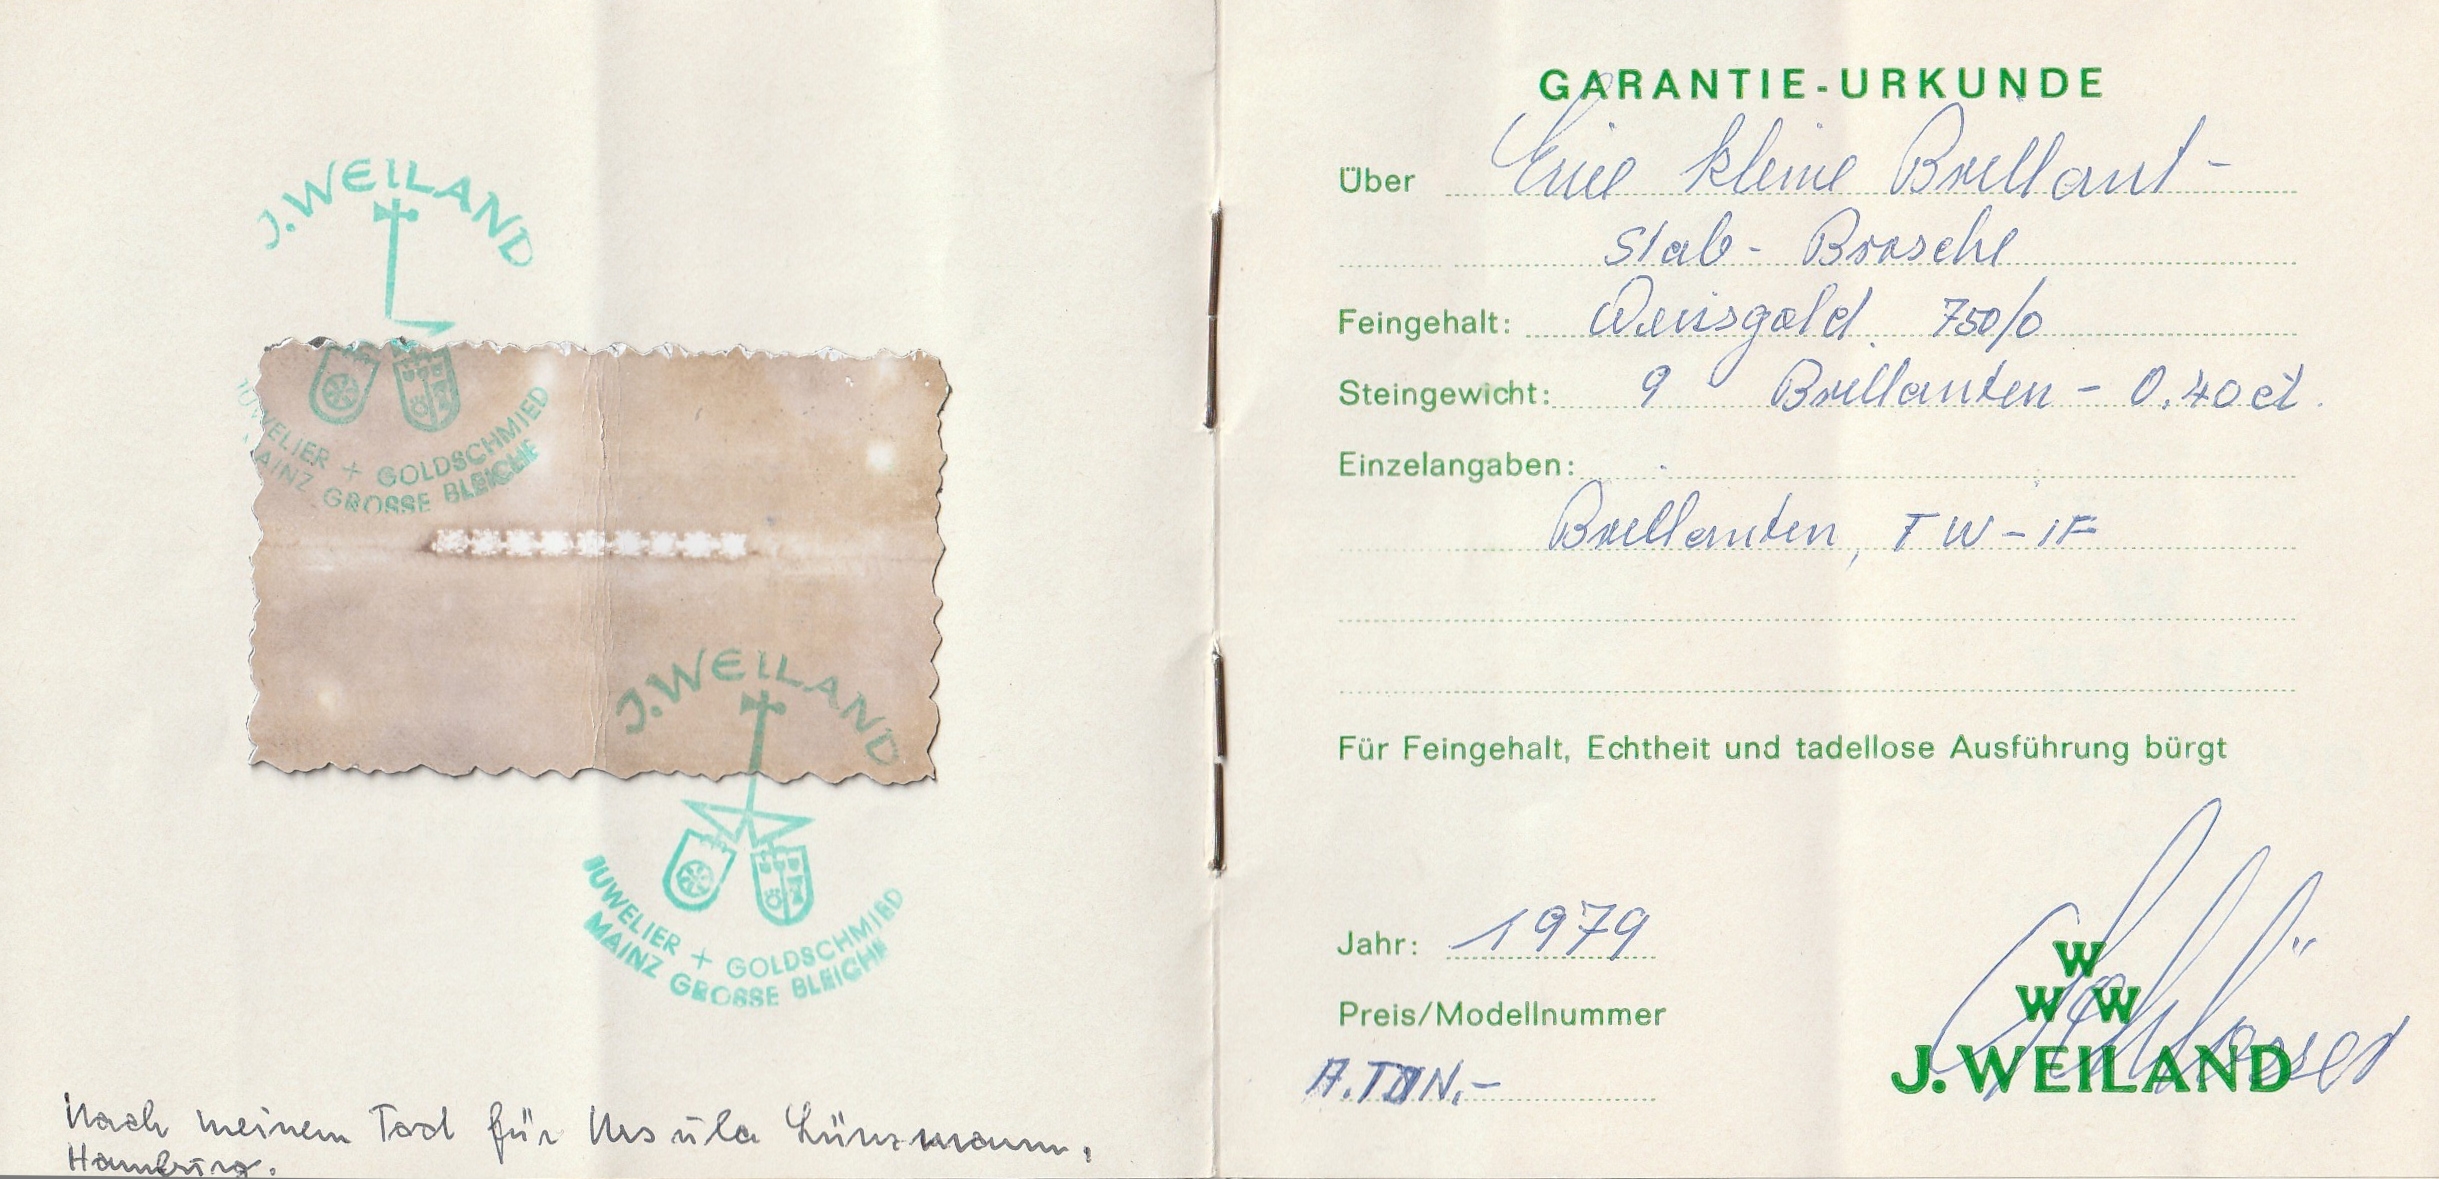 J. WEILAND
JUWELIER + GOLDSCHMIED
MAINZ GROSSE BLEICHE
J. WEILAND
JUWELIER + GOLDSCHMIED
MAINZ GROSSE BLEICHE
Nach meinem Tod für Ursula
Hamburg.
GARANTIE-URKUNDE
Über Eine kleine Brillant-
Stab-Brosche
Feingehalt: Weissgold 750/0
Steingewicht: 9 Brillanten - 0,40 ct.
Einzelangaben:
Brillanten, TW-IF
Für Feingehalt, Echtheit und tadellose Ausführung bürgt
Jahr: 1979
Preis/Modellnummer
W
W W
J. WEILAND